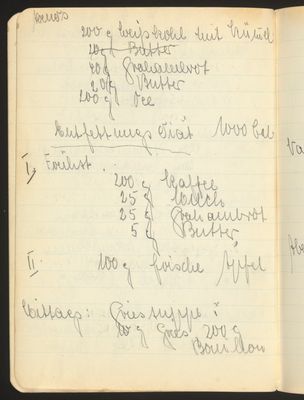 abends
200 g Weißkohl mit Kümmel
20 g Butter
20 g Grahambrot
20 g Butter
200 g Tee
Entfettungs Diät 1000 Cal
I. Frühst.
200 g Kaffee
25 g Milch
25 g Grahambrot
5 g Butter
II. 100 g frische Äpfel
Mittags: Griessuppe:
10 g Gries, 200 g
Bouillon